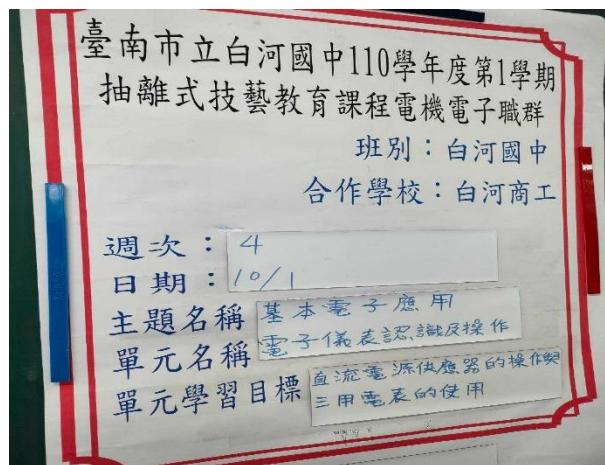 臺南市立白河國中110學年度第1學期
抽離式技藝教育課程電機電子職群
班別：白河國中
合作學校：白河商工
週次：4
日期：10/1
主題名稱 基本電子應用
單元名稱 電子儀表認識及操作
單元學習目標 直流電源供應器的操作與
三用電表的使用